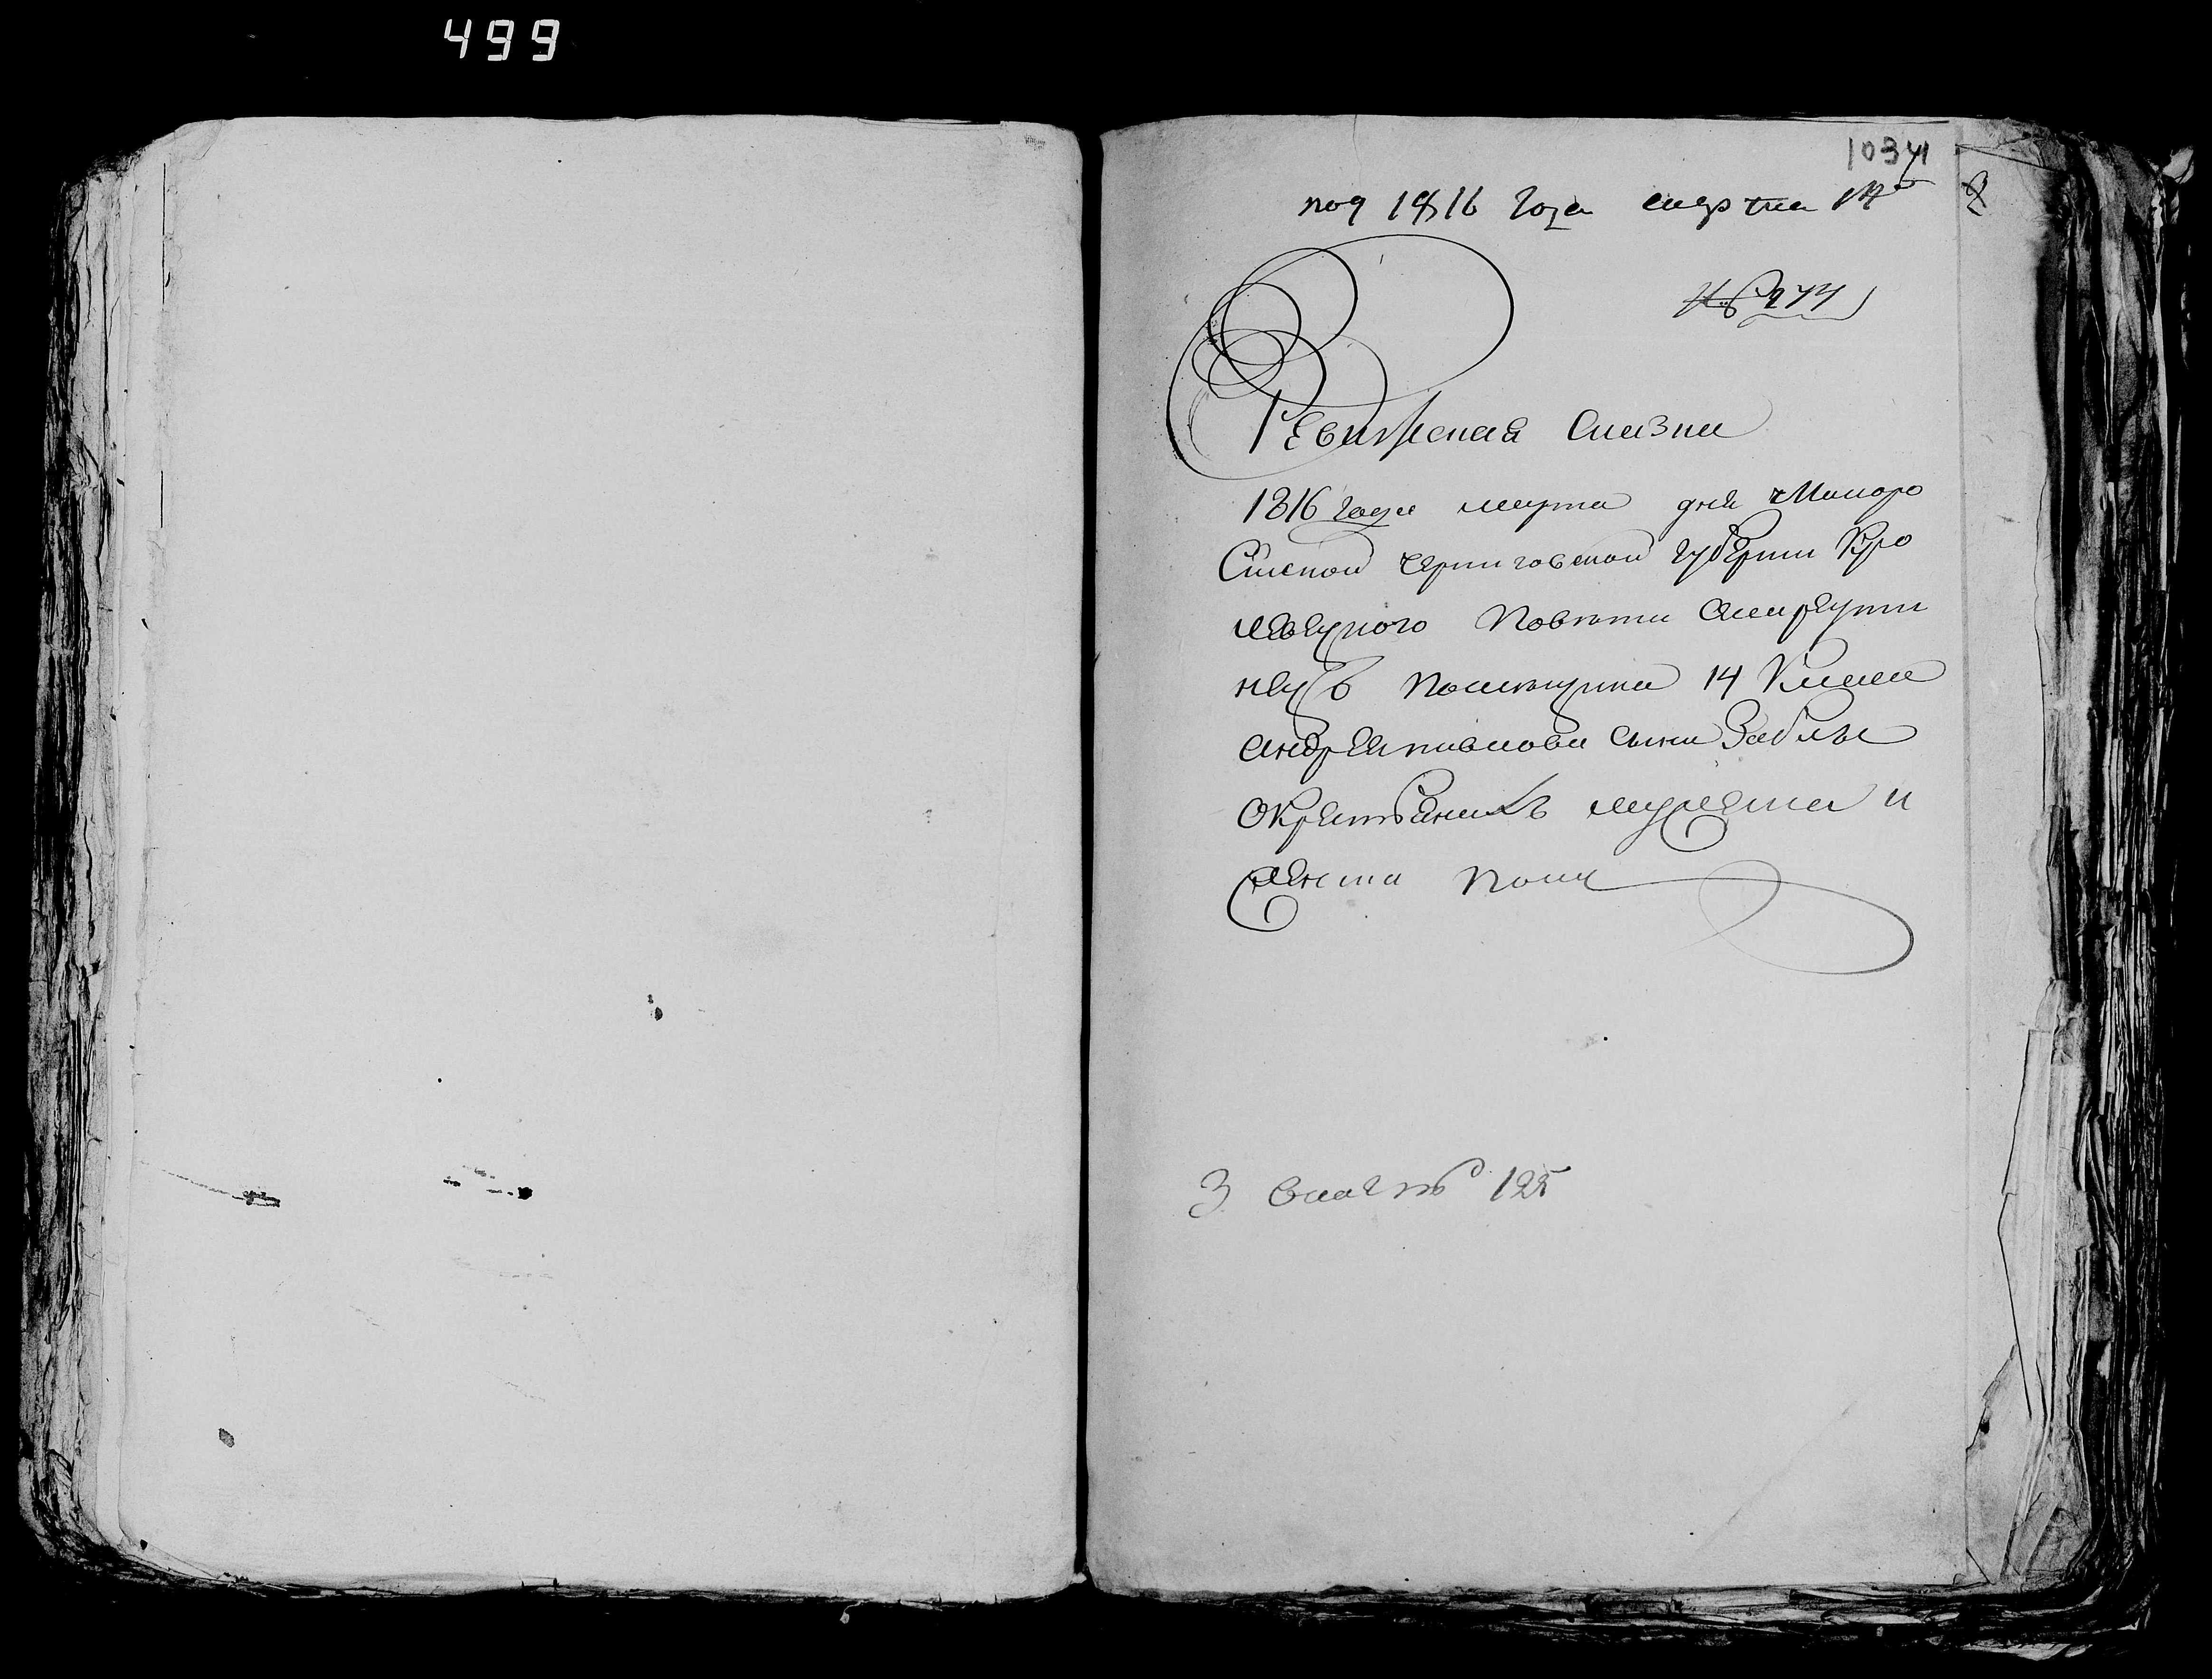 499
1034
под 1816 года марта 14
№ 277
Ревизская Сказка
1816 года марта дня Малоро
Сийской черниговской губернии Кро
левецкого Повета
помещика 14 Класа
андрея павлова сына Забелы
О Крестьянахъ мужеска и
женска пола
3 125